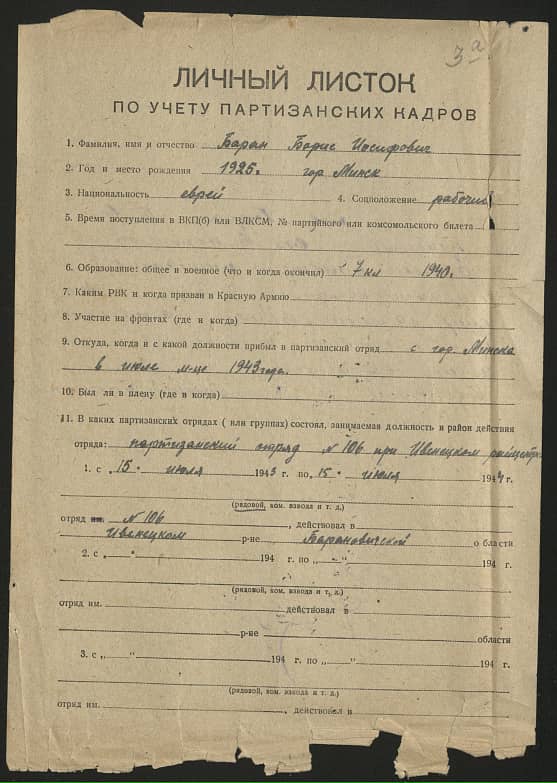 3а
ЛИЧНЫЙ ЛИСТОК
ПО УЧЕТУ ПАРТИЗАНСКИХ КАДРОВ
1. Фамилия, имя и отчество Баран Борис Иосифович
2. Год и место рождения 1925г. гор Минск
3. Национальность еврей 4. Соцположение рабочий
5. Время поступления в ВКП(б) или ВЛКСМ, № партийного или комсомольского билета
6. Образование: общее и военное (что и когда окончил) 7 кл 1940г.
7. Каким РВК и когда призван в Красную Армию
8. Участие на фронтах (где и когда)
9. Откуда, когда и с какой должности прибыл в партизанский отряд с гор. Минска
в июле м-це 1943 года.
10. Был ли в плену (где и когда)
11. В каких партизанских отрядах (или группах) состоял, занимаемая должность и район действия
отряда: партизанский отряд N 106 при Ивенецком
1. с „15" июля 1943 г. по „15" июля 1944 г.
(рядовой, ком. взвода и т. д.)
отряд им. N 106, действовал в
Ивенецком р-не Барановичской области
2. с „ " 194 г. по „ " 194 г.
(рядовой, ком. взвода и т. д.)
отряд им. , действовал в
р-не области
3. с „ " 194 г. по „ " 194 г.
(рядовой, ком. взвода и т. д.)
отряд им. , действовал в